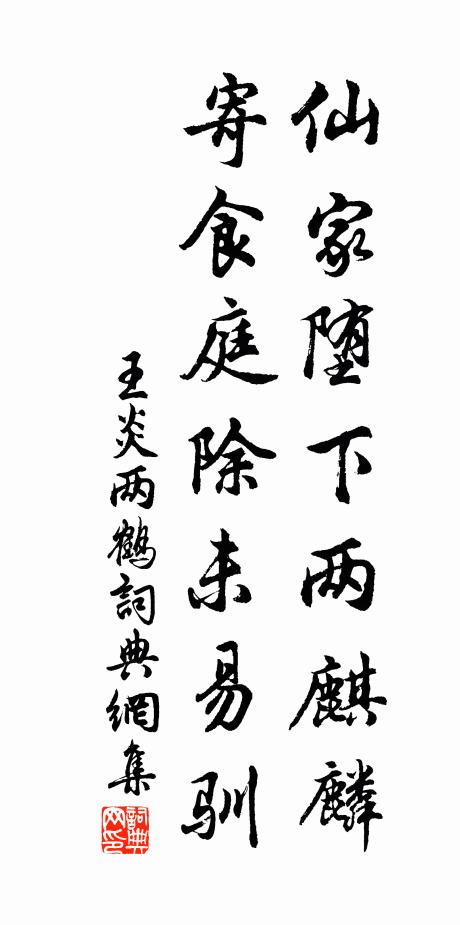 仙家堕下两麒麟
寄食庭除未易驯
王炎两鶴詞典網集
詞典网印